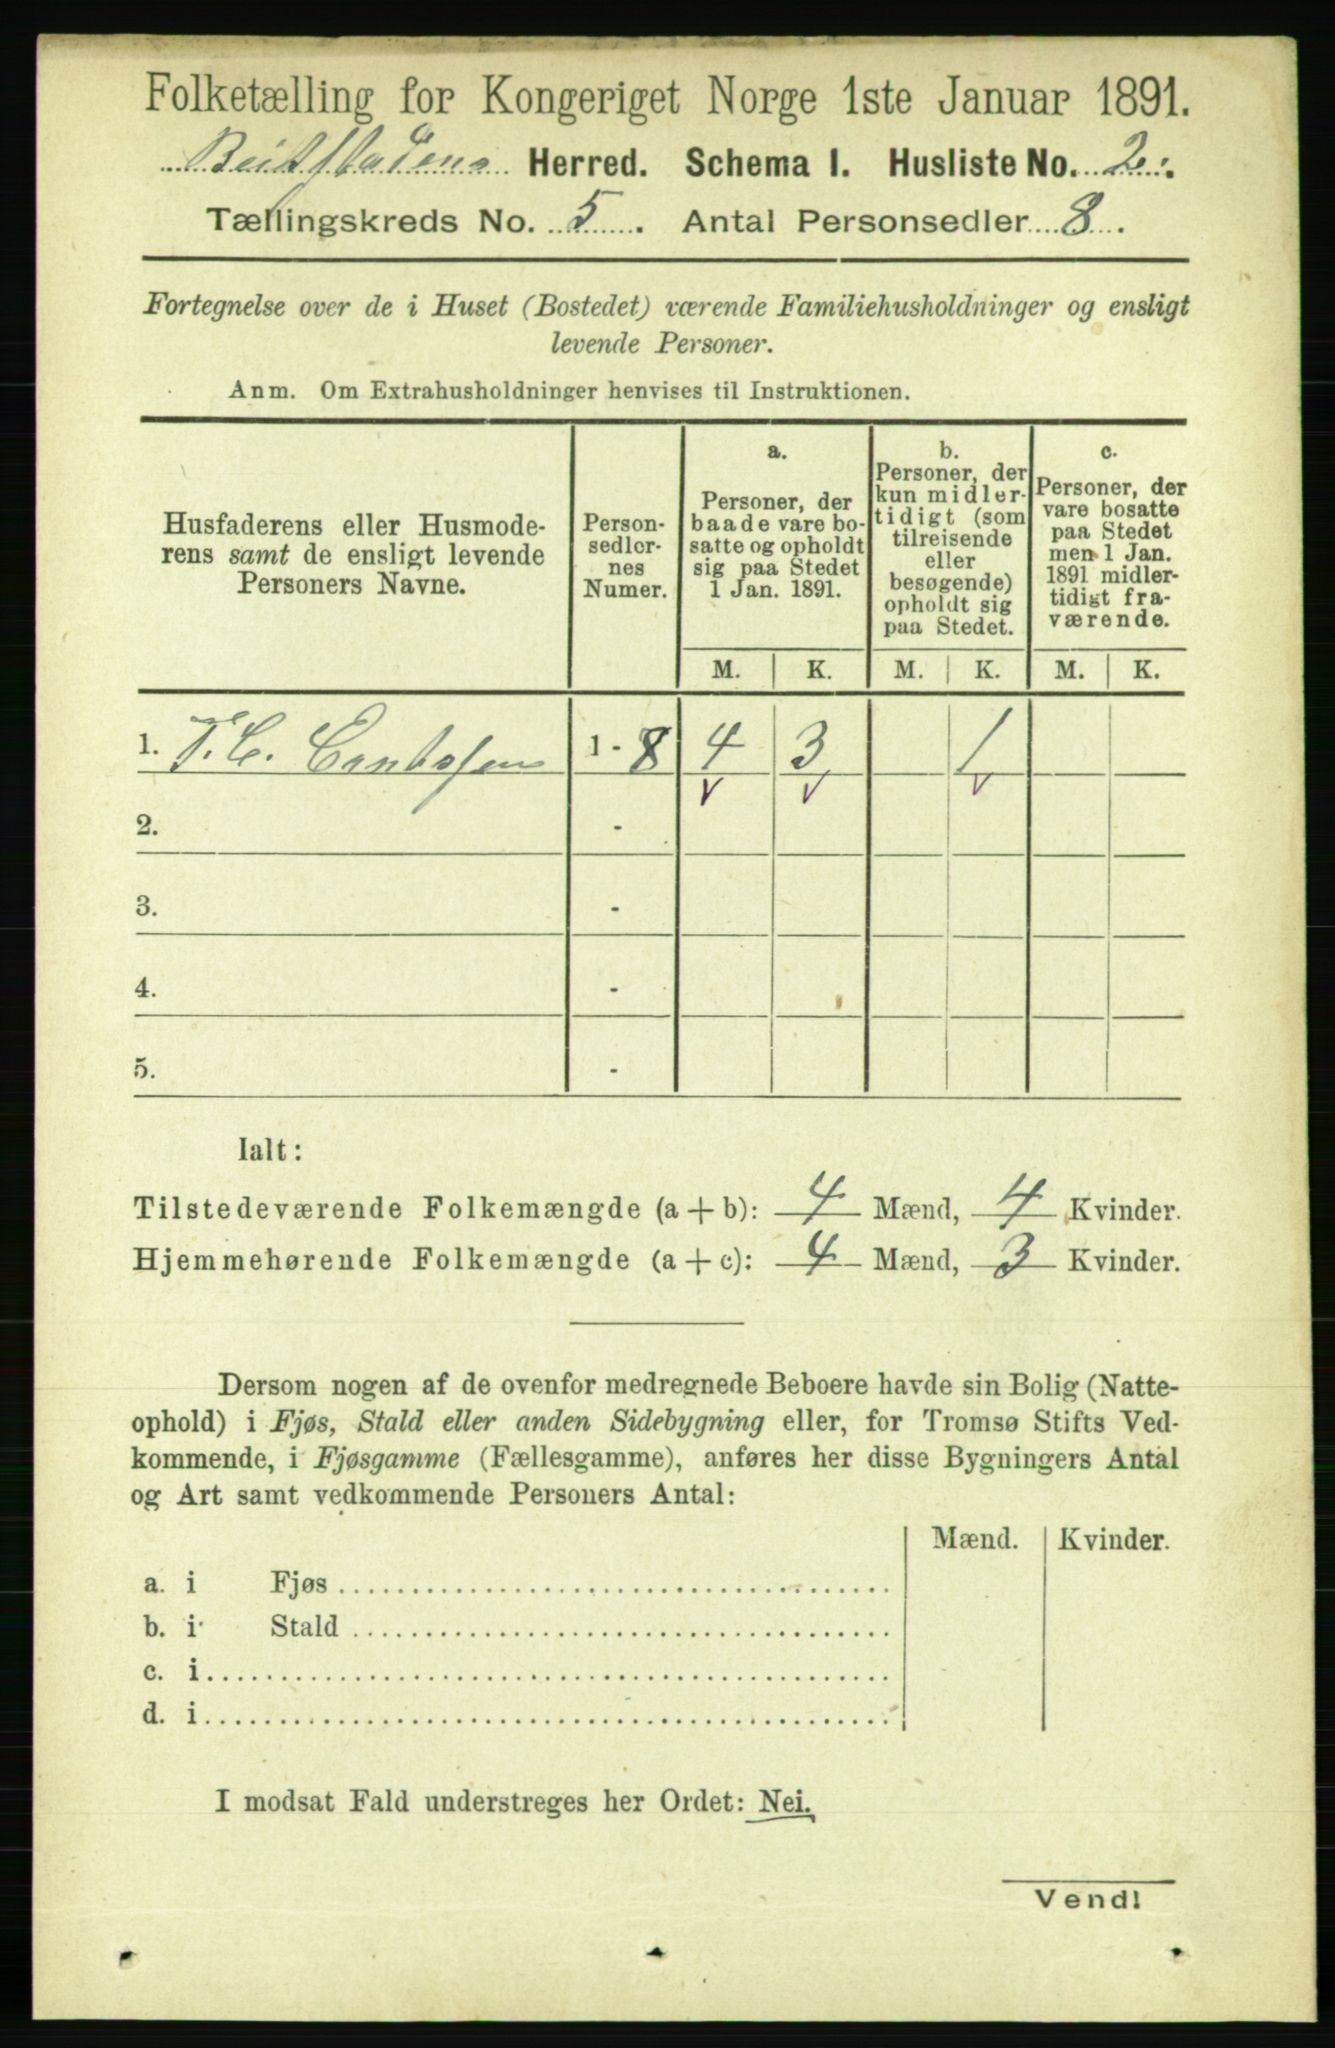 Folketælling for Kongeriget Norge 1ste Januar 1891.
Beitstadens Herred. Schema I. Husliste No. 2.
Tællingskreds No. 5. Antal Personsedler 8.
Fortegnelse over de i Huset (Bostedet) værende Familiehusholdninger og ensligt
levende Personer.
Anm. Om Extrahusholdninger henvises til Instruktionen.
Husfaderens eller Husmode-
rens samt de ensligt levende
Personers Navne.
Person-
sedler-
nes
Numer.
a.
Personer, der
baade vare bo-
satte og opholdt
sig paa Stedet
1 Jan. 1891.
b.
Personer, der
kun midler-
tidigt (som
tilreisende
eller
besøgende)
opholdt sig
paa Stedet.
c.
Personer, der
vare bosatte
paa Stedet
men 1 Jan.
1891 midler-
tidigt fra-
værende.
M. K. M. K. M. K.
1. T. C. 1 - 8 4 3 1
v v v
2. -
3. -
4. -
5. -
Ialt:
Tilstedeværende Folkemængde (a + b): 4 Mænd, 4 Kvinder.
Hjemmehørende Folkemængde (a + c): 4 Mænd, 3 Kvinder.
Dersom nogen af de ovenfor medregnede Beboere havde sin Bolig (Natte-
ophold) i Fjøs, Stald eller anden Sidebygning eller, for Tromsø Stifts Ved-
kommende, i Fjøsgamme (Fællesgamme), anføres her disse Bygningers Antal
og Art samt vedkommende Personers Antal:
Mænd. Kvinder.
a. i Fjøs
b. i Stald
c. i
d. i
I modsat Fald understreges her Ordet: Nei.
Vend!